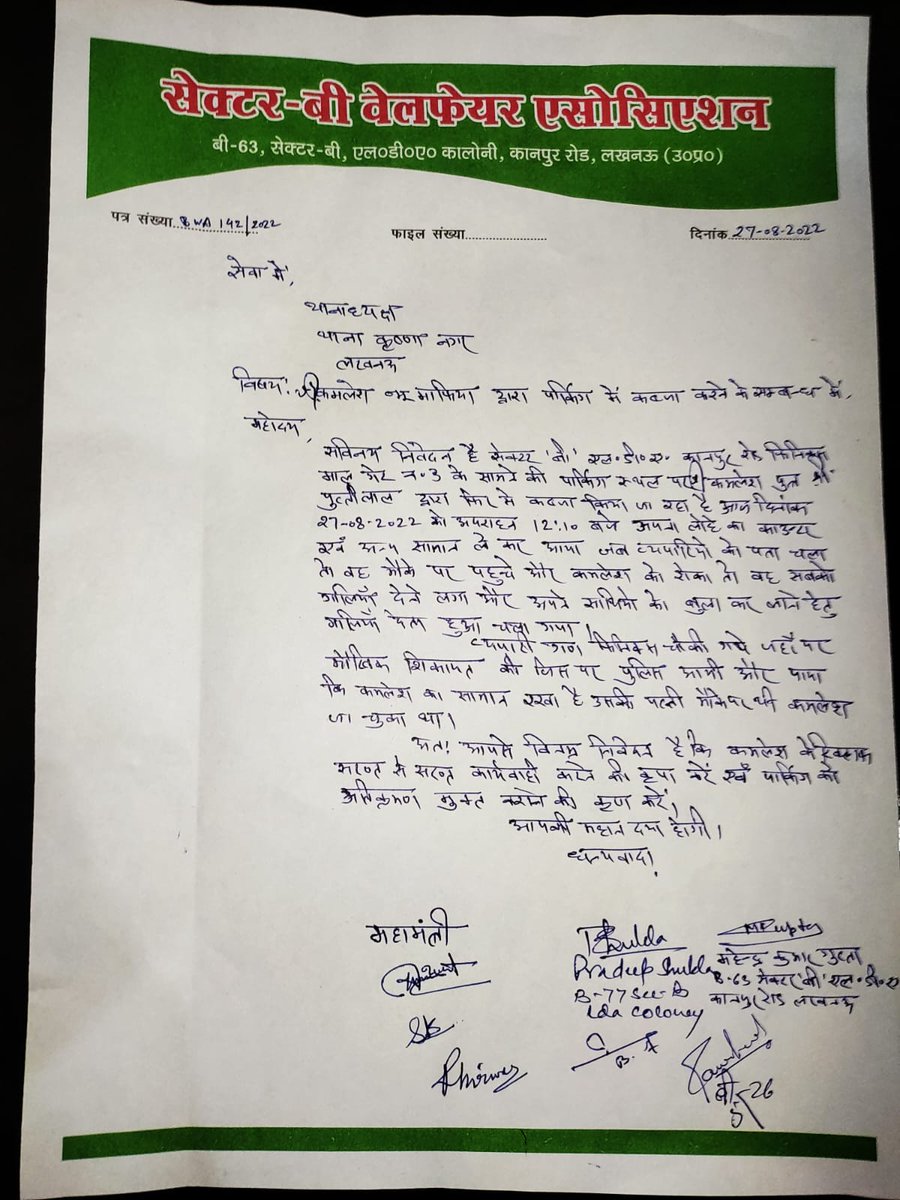 सेक्टर-बी वेलफेयर एसोसिएशन
बी-63, सेक्टर-बी, एल०डी०ए० कालोनी, कानपुर रोड, लखनऊ (उ०प्र०)
पत्र संख्या BWA 142/2022
फाइल संख्या....................
दिनांक 27-08-2022
सेवा में,
थानाध्यक्ष
थाना कृष्णा नगर
लखनऊ
विषय: श्री कमलेश भू माफिया द्वारा पार्किंग में कब्जा करने के सम्बन्ध में,
महोदय,
सविनय निवेदन है सेक्टर 'बी' एल.डी.ए. कानपुर रोड फिनिक्स
माल गेट न.3 के सामने की पार्किंग स्थल पर श्री कमलेश पुत्र श्री
पुत्तीलाल द्वारा फिर से कब्जा किया जा रहा है आज दिनांक
27-08-2022 को अपराहन 12:10 बजे अपना लोहे का काउन्टर
एवं अन्य सामान ले कर आया जब व्यपारियो को पता चला
तो वह मौके पर पहुचे और कमलेश को रोका तो वह सबको
गलियाँ देने लगा और अपने साथियो को बुला कर लाने हेतु
गलियाँ देता हुआ चला गया।
व्यपारी गण फिनिक्स चौकी गये जहाँ पर
मौखिक शिकायत की जिस पर पुलिस आयी और पाया
कि कमलेश का सामान रखा है उसकी पत्नी मौके पर थी कमलेश
जा चुका था।
अतः आपसे विनम्र निवेदन है कि कमलेश के खिलाफ
सख्त से सख्त कार्यवाही करने की कृपा करें एवँ पार्किंग को
अतिक्रमण मुक्त कराने की कृपा करें,
आपकी महान दया होगी।
धन्यवाद!
महामंत्री
Pradeep Shukla
B-77 Sec-B
Lda Coloney
MKGupta
महेन्द्र कुमार गुप्ता
B-63 सेक्टर 'बी' एल.डी.ए
कानपुर रोड लखनऊ
SK
बी-26